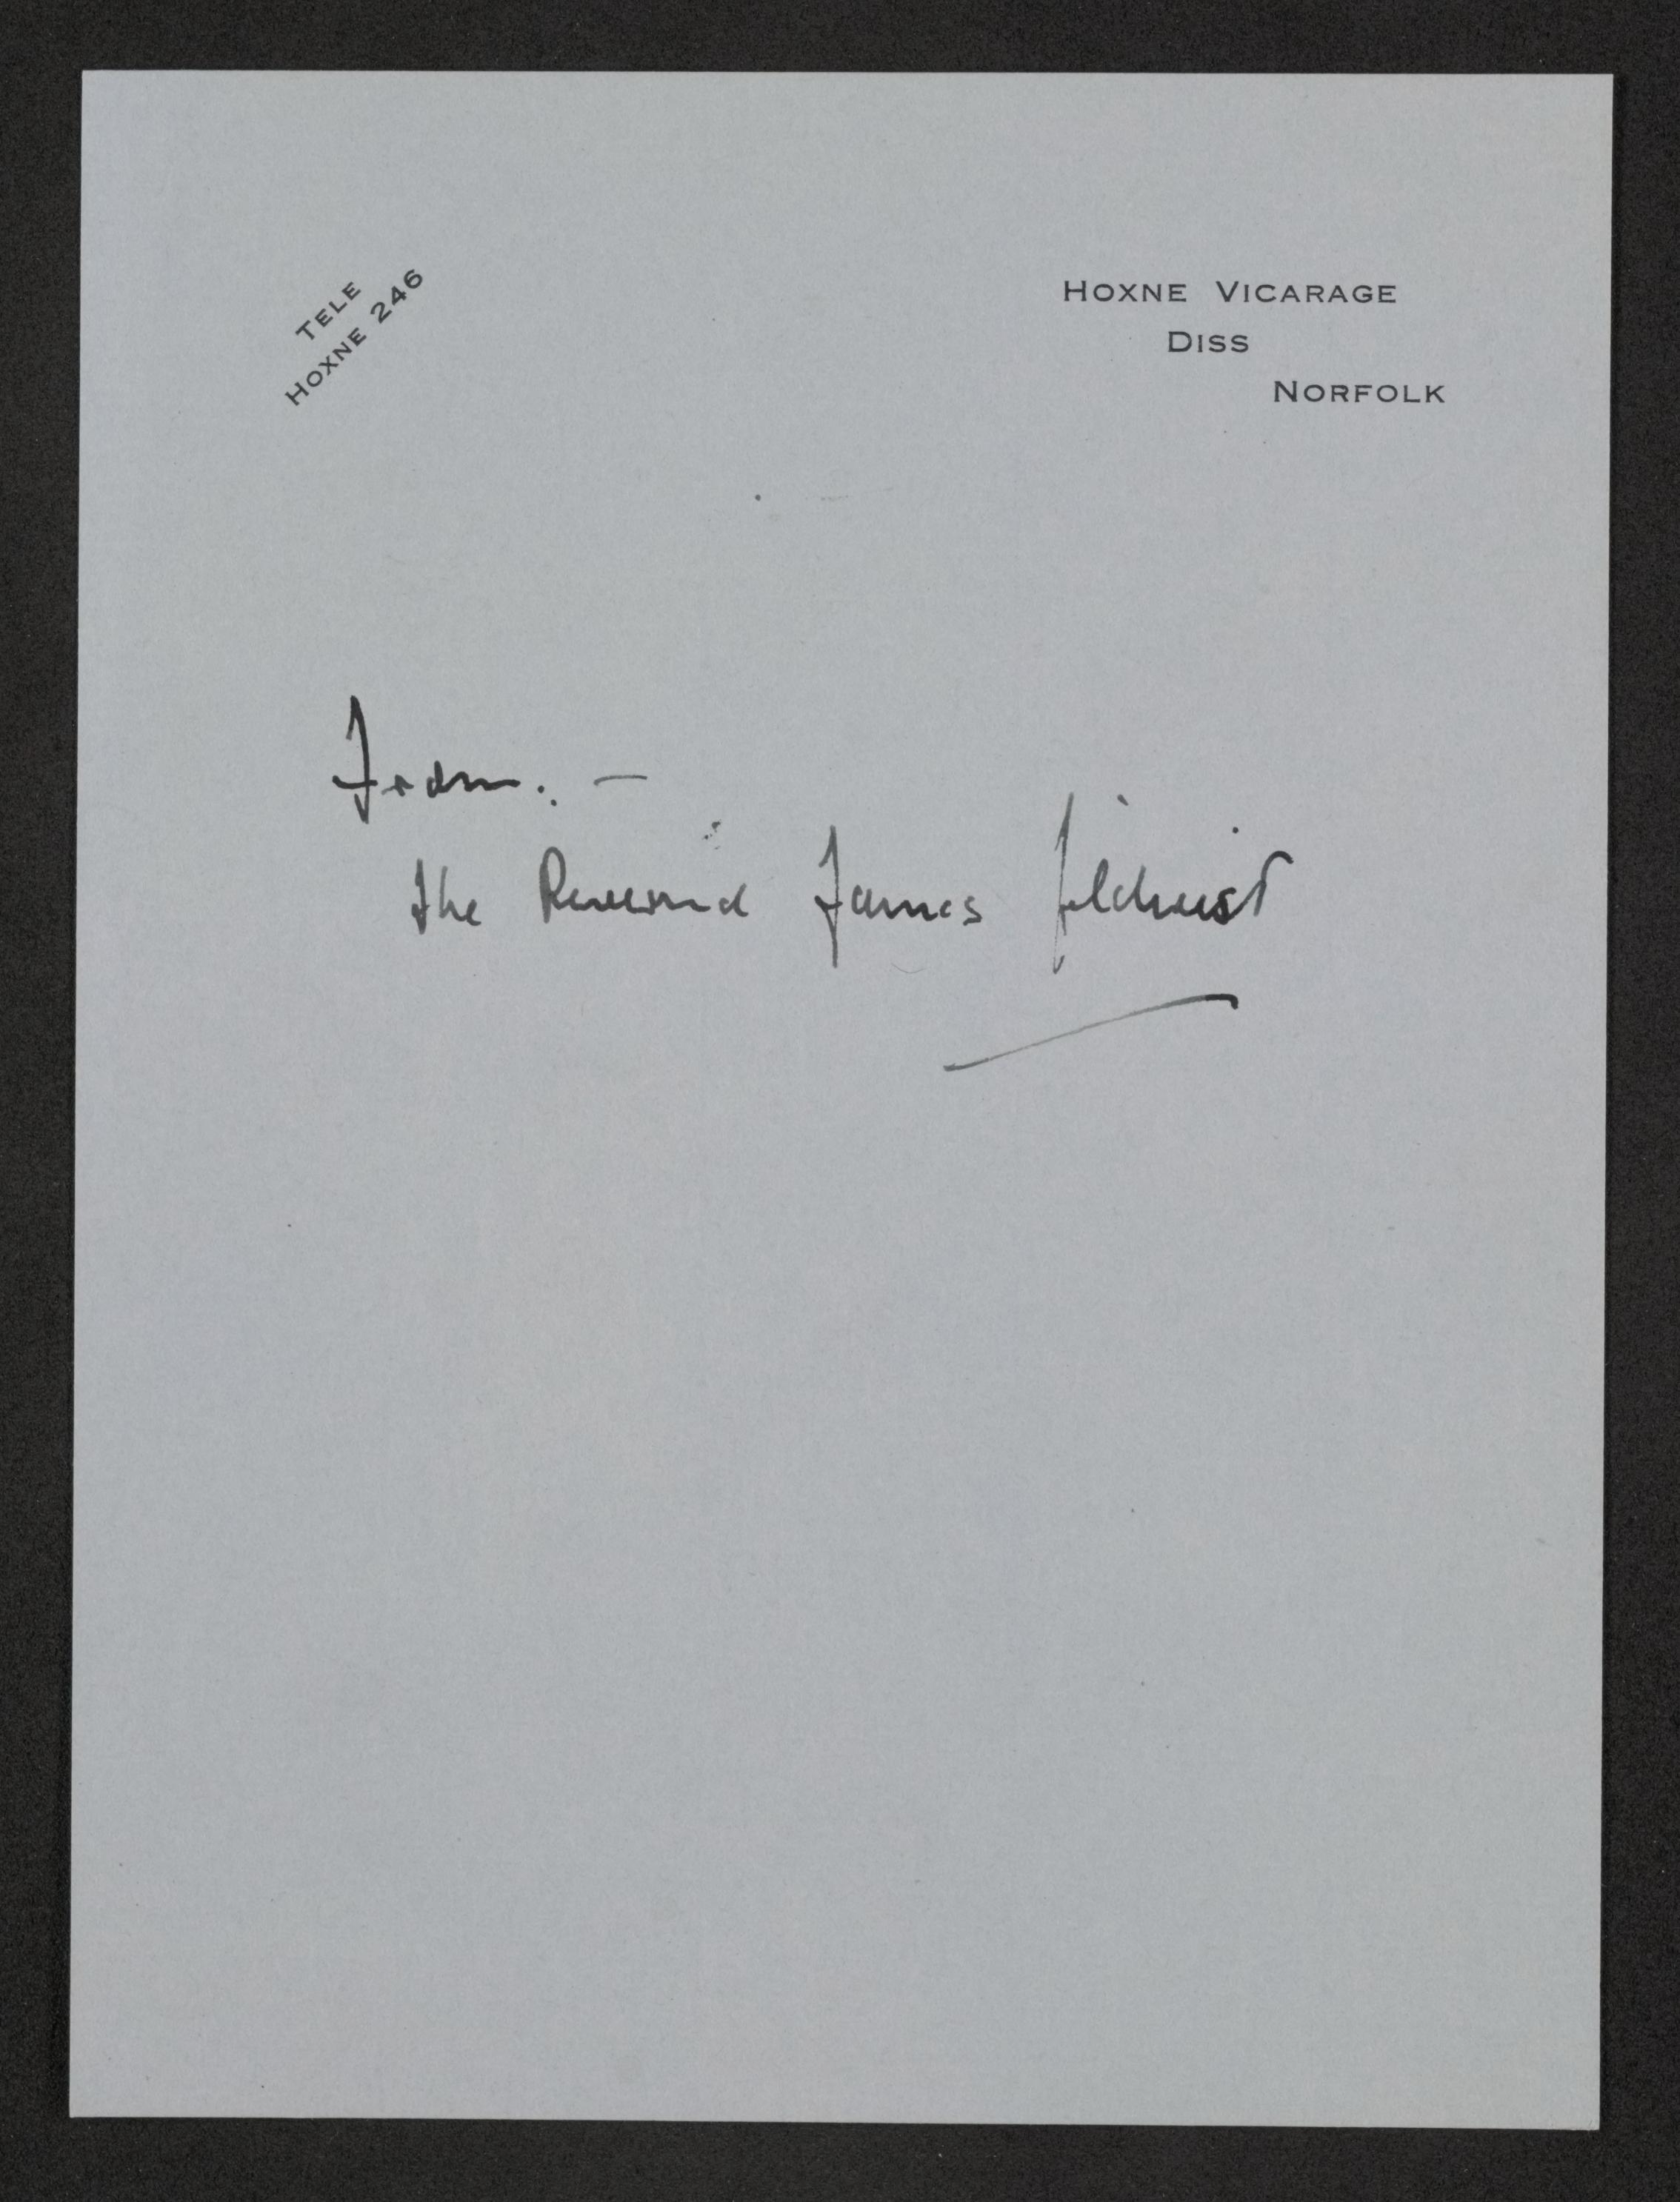 TELE
HOXNE 246
HOXNE VICARAGE
DISS
NORFOLK
From:. —
The Reverend James Gilchrist